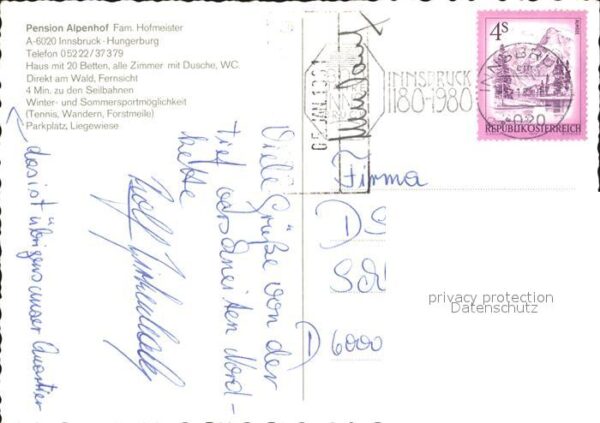 Pension Alpenhof Fam. Hofmeister
A-6020 Innsbruck-Hungerburg
Telefon 05222/37379
Haus mit 20 Betten, alle Zimmer mit Dusche, WC.
Direkt am Wald, Fernsicht
4 Min. zu den Seilbahnen
Winter- und Sommersportmöglichkeit
(Tennis, Wandern, Forstmeile)
Parkplatz, Liegewiese
das ist übrigens unser Quartier
Viele Grüße von der
tief verschneiten Nord-
kette
Rolf
05. JAN. 1981
INNSBRUCK
1180-1980
INNSBRUCK
6020
4S
REPUBLIK ÖSTERREICH
Firma
D
Sch
D 6000
privacy protection
Datenschutz